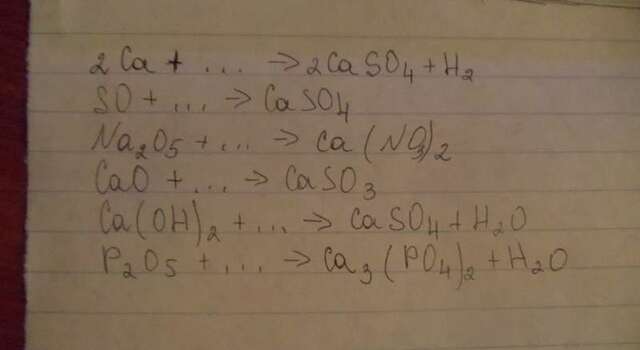 2Ca + ... → 2CaSO4 + H2
SO + ... → CaSO4
Na2O5 + ... → Ca(NO3)2
CaO + ... → CaSO3
Ca(OH)2 + ... → CaSO4 + H2O
P2O5 + ... → Ca3(PO4)2 + H2O